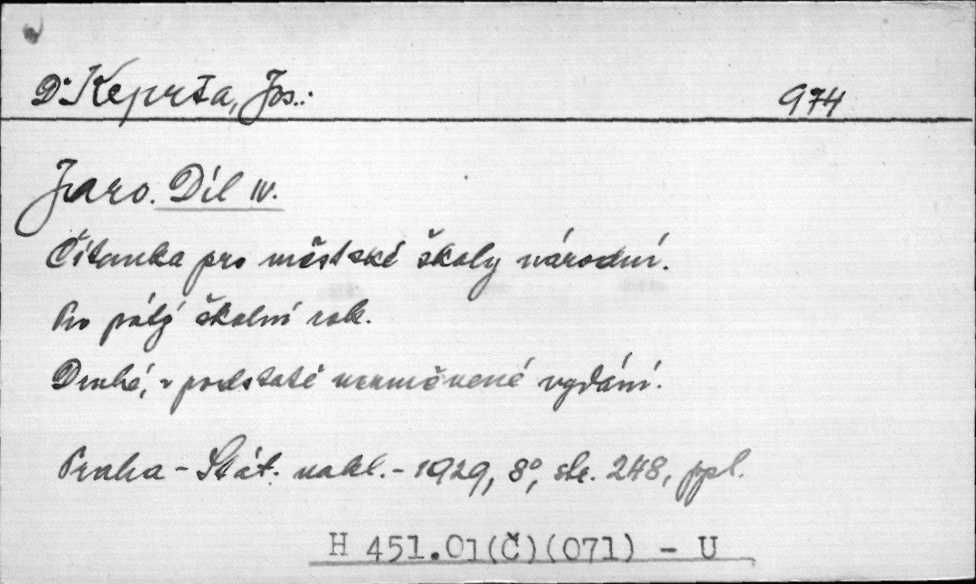 Dr Keprta, Jos.: 974
Jaro. Díl IV.
Čítanka pro městské školy národní.
Pro pátý školní rok.
Druhé, v podstatě nezměněné vydání.
Praha - Stát. nakl. - 1929, 8°, str. 248, ppl.
H 451.01(Č)(071) - U